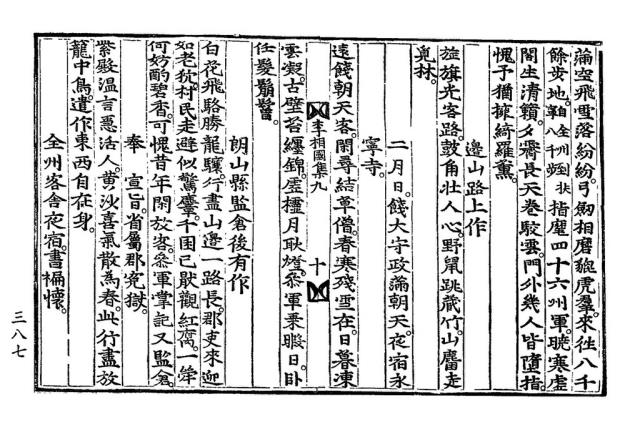 滿空飛雪落紛紛。弓劒相磨貔虎羣。來往八千
餘步地。指麾四十六州軍。曉寒虛
閣生清籟。夕霽長天卷駮雲。門外幾人皆墮指
愧予猶擁綺羅薰。
邊山路上作
旌旗光客路。鼓角壯人心。野鼠跳藏竹。山麕走
林。
二月日。餞大守政滿朝天。夜宿永
寧寺。
遠餞朝天客。閑尋結草僧。春寒殘雪在。日暮凍
李相國集九 十
雲凝。古壁苔纏錦。虛櫺月耿燈。叅軍乗暇日。卧
任髮鬅鬙。
朗山縣監倉後有作
白花飛駱勝龍驤。行盡山邊一路長。郡吏來迎
如老狖。村民走避似驚麞。千囷已猒觀紅腐。一斝
何妨酌碧香。可愧昔年閑放客。叅軍掌記又監倉。
奉 宣旨。省屬郡寃獄。
紫殿溫言悉活人。沙喜氣散為春。此行盡放
籠中鳥。遣作東西自在身。
全州客舍夜宿。書褊懷。
三八七